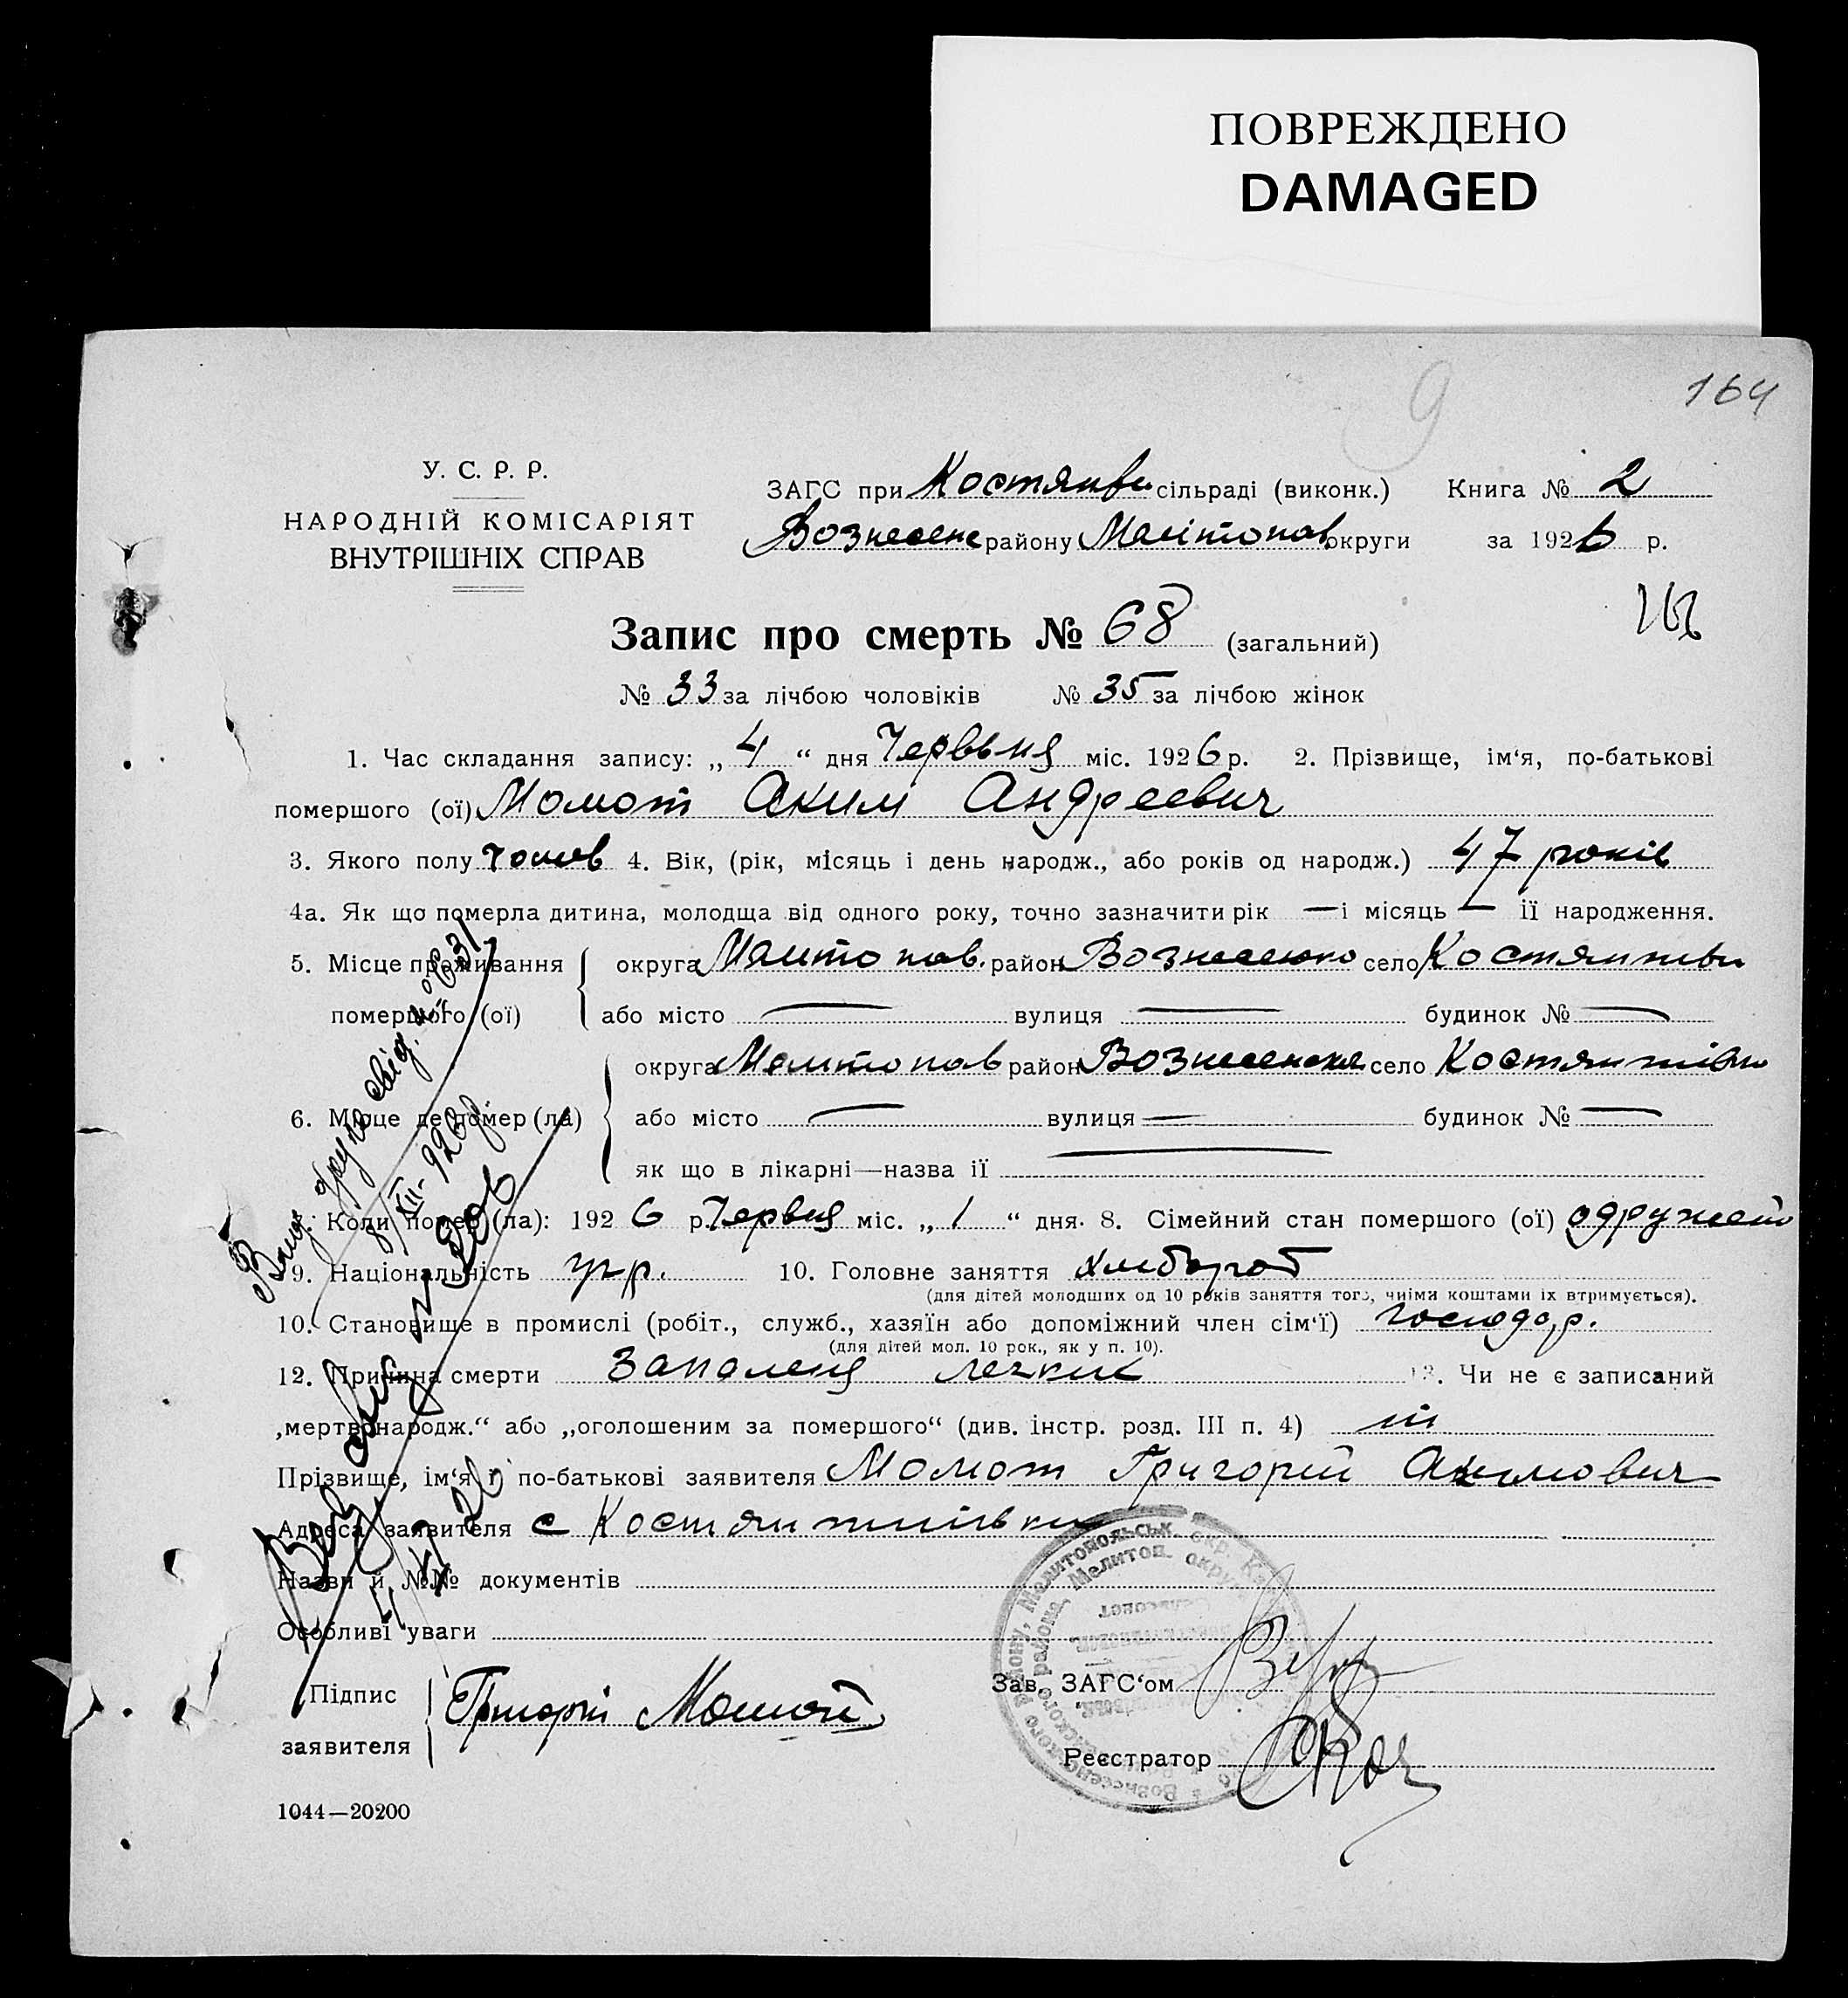 ПОВРЕЖДЕНО
DAMAGED
9
164
У. С. Р. Р.
НАРОДНІЙ КОМІСАРІЯТ
ВНУТРІШНІХ СПРАВ
ЗАГС при Костянтів сільраді (виконк.) Книга № 2
Вознесенс району Мелітопов округи за 1926 р.
Запис про смерть № 68 (загальний)
№ 33 за лічбою чоловіків № 35 за лічбою жінок
1. Час складання запису: „ 4 “ дня Червня міс. 1926 р. 2. Прізвище, ім‘я, по-батькові
помершого (ої) Момот Аким Андреевич
3. Якого полу чолов 4. Вік, (рік, місяць і день народж., або років од народж.) 47 років
4а. Як що померла дитина, молодща від одного року, точно зазначити рік — і місяць — її народження.
5. Місце проживання помершого (ої)
округа Мелитопов. район Вознесенско село Костянтивк
або місто — вулиця — будинок № —
6. Місце де помер (ла)
округа Мелитопов район Вознесенска село Костянтивк
або місто — вулиця — будинок № —
як що в лікарні—назва її —
7. Коли помер (ла): 1926 р. Червня міс. „ 1 “ дня. 8. Сімейний стан помершого (ої) одружено
9. Національність укр. 10. Головне заняття хлібороб
(для дітей молодших од 10 років заняття того, чиїми коштами їх втримується).
10. Становище в промислі (робіт., служб., хазяїн або допоміжний член сім‘ї) господар.
(для дітей мол. 10 рок., як у п. 10).
12. Причина смерти Запаленя легких 13. Чи не є записаний
„мертвонародж.“ або „оголошеним за помершого“ (див. інстр. розд. III п. 4) ні
Прізвище, ім‘я і по-батькові заявителя Момот Григорий Акимович
Адреса заявителя с Костянтинівка
Назви й №№ документів
Особливі уваги
Підпис заявителя Григорій Момот
Зав. ЗАГС‘ом
Реєстратор
1044—20200